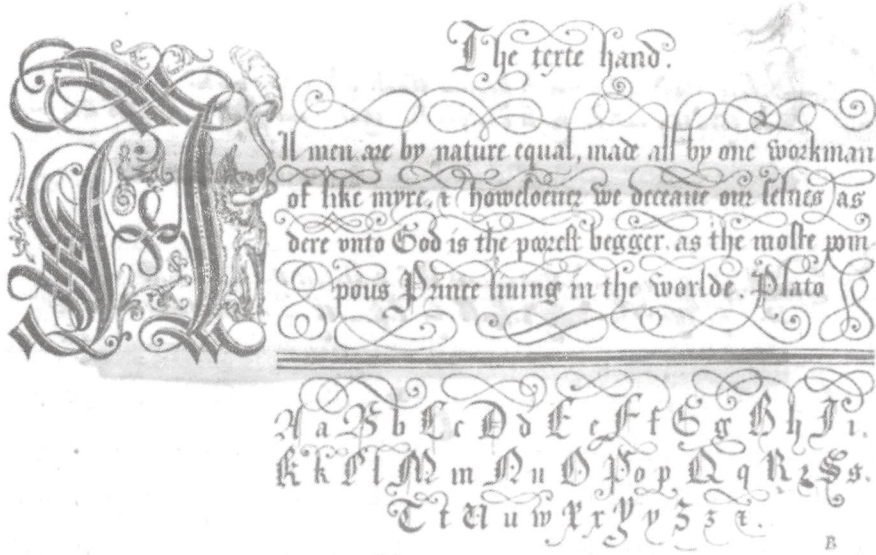 The texte hand.
All men are by nature equal, made all by one workman
of like myre, & howsoever we deceaue our selues as
dere vnto God is the poorest begger, as the moste pom-
pous Prince liuing in the worlde. Plato
A a B b C c D d E e F f G g H h I i.
K k L l M m N n O P o p Q q R r S s.
T t U u w X x Y y Z z &.
B